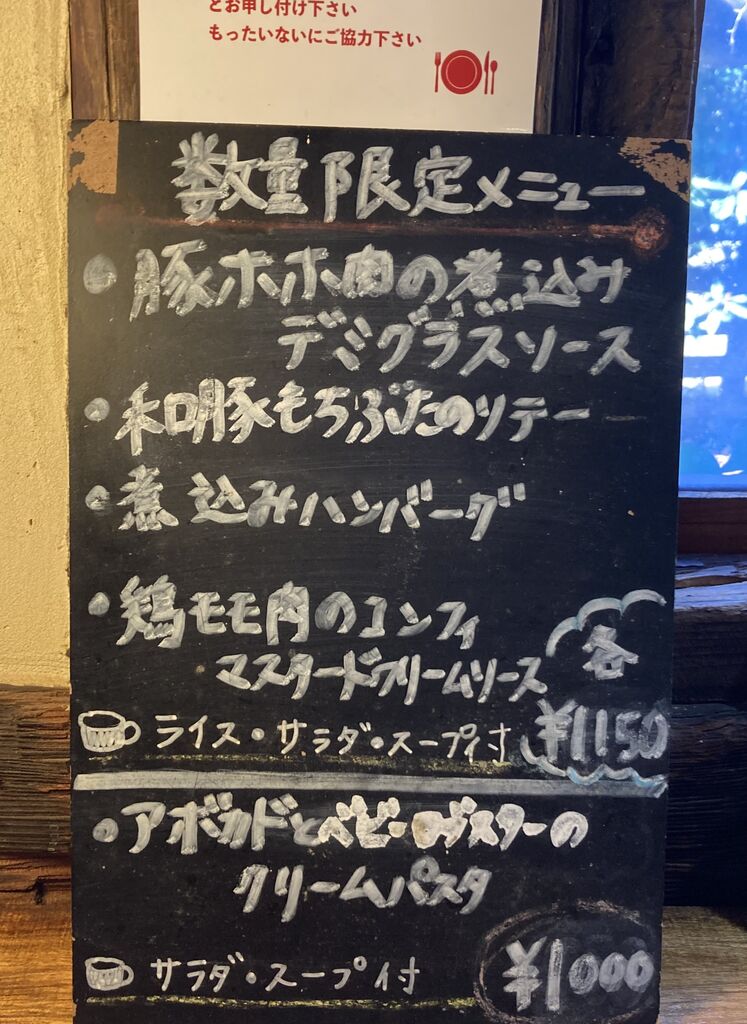 とお申し付け下さい
もったいないにご協力下さい
数量限定メニュー
・豚ホホ肉の煮込み
デミグラスソース
・和豚もちぶたのソテー
・煮込みハンバーグ
・鶏モモ肉のコンフィ
マスタードクリームソース
各
ライス・サラダ・スープ付
¥1150
・アボカドとベビーロブスターの
クリームパスタ
サラダ・スープ付
¥1000